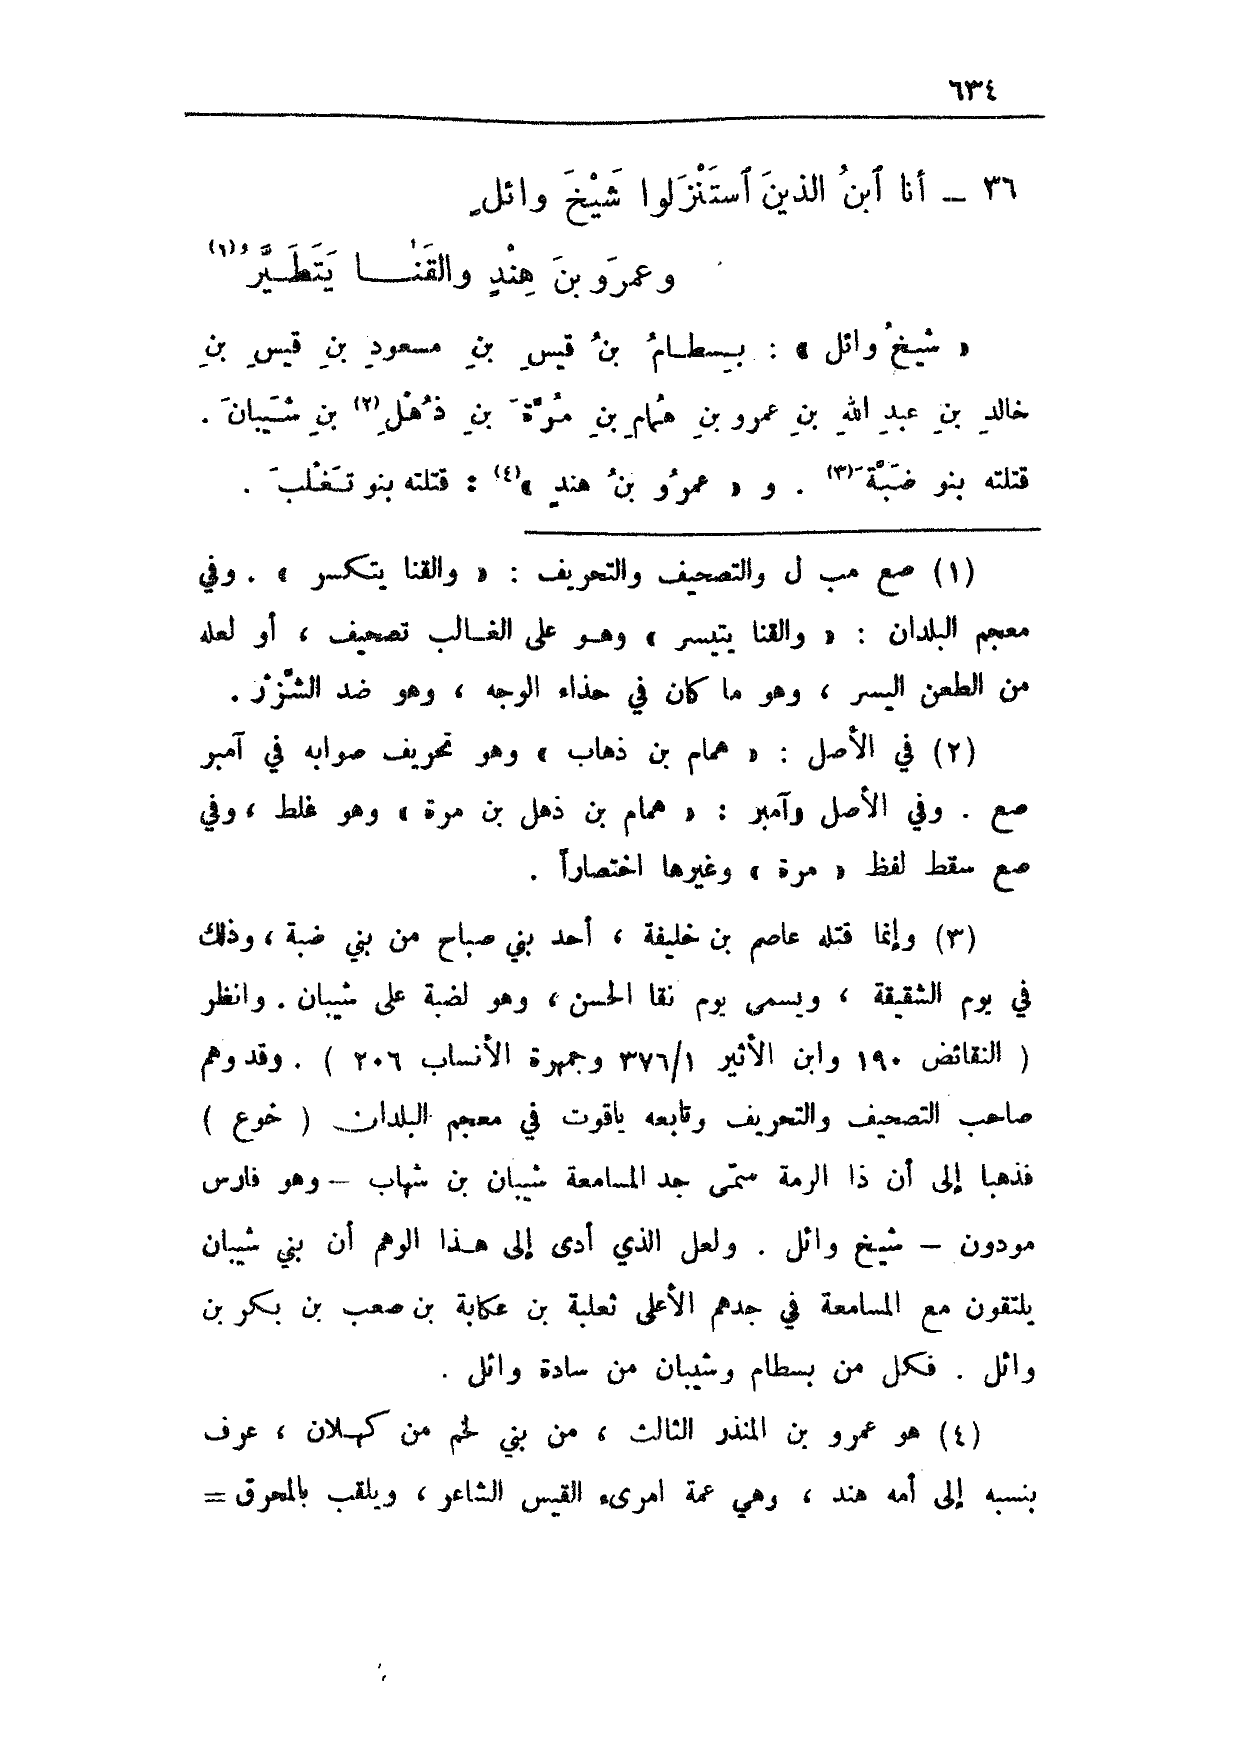 ٦٣٤
٣٦ ـ أنا ٱبنُ الذينَ ٱستَنْزَلوا شَيْخَ وائلٍ
وعمرَو بنَ هِنْدٍ والقَنَـــا يَتَطَيَّرُ(١)
« شيخُ وائل » : بِسطـامُ بنُ قيسِ بنِ مسعودِ بنِ قيسِ بنِ
خالدِ بنِ عبدِ اللهِ بنِ عمرو بنِ همُامِ بنِ مُرَّةَ بنِ ذُهْلِ(٢) بنِ شَيبانَ .
قتلته بنو ضَبَّةَ(٣) . و « عمرُو بنُ هندٍ »(٤) : قتلته بنو تَغْلبَ .
(١) صع مب ل والتصحيف والتحريف : « والقنا يتكسر » . وفي
معجم البلدان : « والقنا يتيسر » وهـو على الغـالب تصحيف ، أو لعله
من الطعن اليسر ، وهو ما كان في حذاء الوجه ، وهو ضد الشَّزْر .
(٢) في الأصل : « همام بن ذهاب » وهو تحريف صوابه في آمبر
صع . وفي الأصل وآمبر : « همام بن ذهل بن مرة » وهو غلط ، وفي
صع سقط لفظ « مرة » وغيرها اختصاراً .
(٣) وإنما قتله عاصم بن خليفة ، أحد بني صباح من بني ضبة ، وذلك
في يوم الشقيقة ، ويسمى يوم نقا الحسن ، وهو لضبة على شيبان . وانظر
( النقائض ١٩٠ وابن الأثير ٣٧٦/١ وجمهرة الأنساب ٢٠٦ ) . وقد وهم
صاحب التصحيف والتحريف وتابعه ياقوت في معجم البلدان ( خوع )
فذهبا إلى أن ذا الرمة سمّى جد المسامعة شيبان بن شهاب – وهو فارس
مودون – شيخ وائل . ولعل الذي أدى إلى هـذا الوهم أن بني شيبان
يلتقون مع المسامعة في جدهم الأعلى ثعلبة بن عكابة بن صعب بن بكر بن
وائل . فكل من بسطام وشيبان من سادة وائل .
(٤) هو عمرو بن المنذر الثالث ، من بني لخم من كهـلان ، عرف
بنسبه إلى أمه هند ، وهي عمة امرىء القيس الشاعر ، ويلقب بالمحرق =